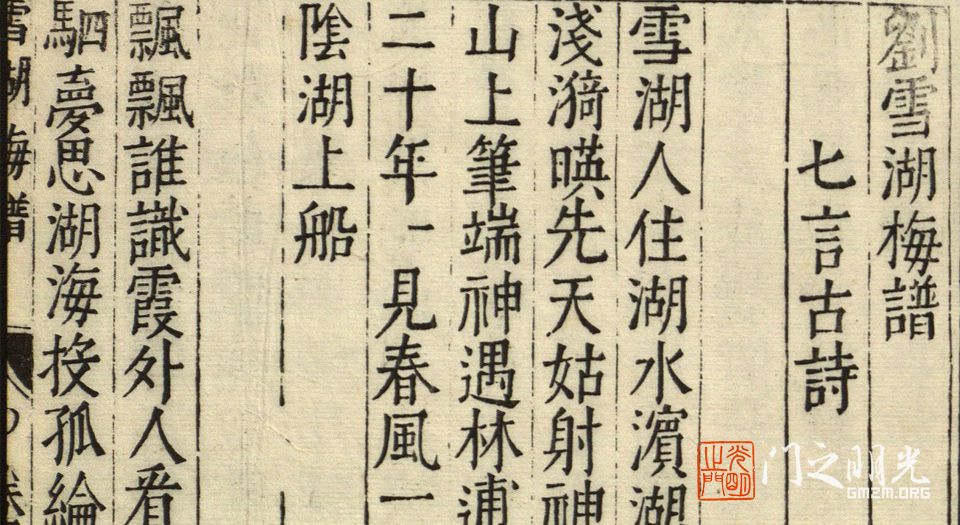 劉雪湖梅譜
七言古詩
雪湖人住湖水濱湖
淺漪暎先天姑射神
山上筆端神遇林逋
二十年一見春風一
陰湖上船
飄飄誰識霞外人看
駟夢思湖海投孤綸
雪湖梅譜
光明之門
门之明光
GMZM.ORG